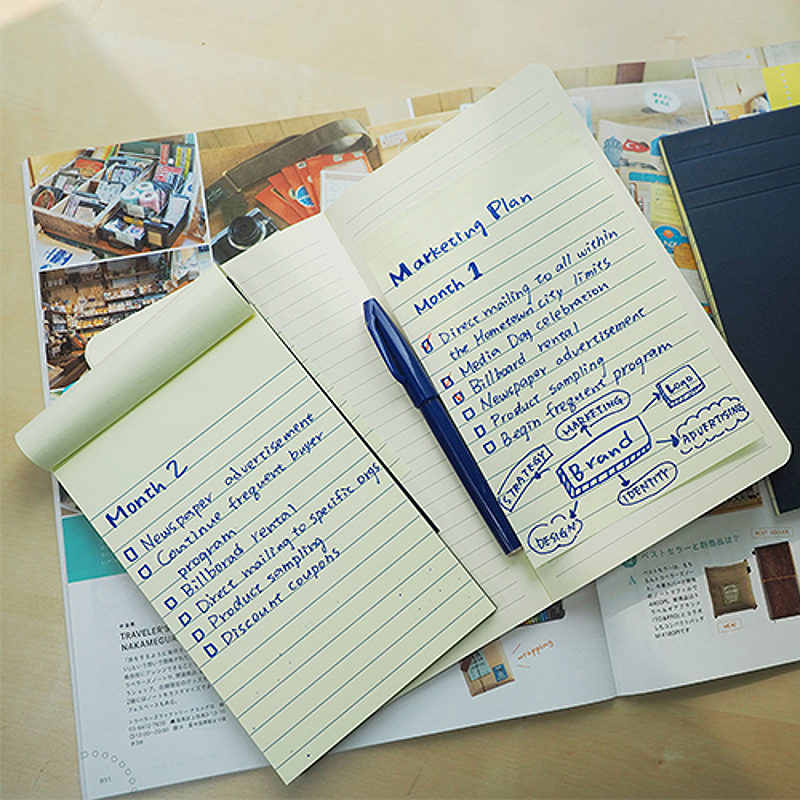 Marketing Plan
Month 1
Direct mailing to all within
the Hometown city limits
Media Day celebration
Billboard rental
Newspaper advertisement
Product sampling
Begin frequent program
MARKETING
LOGO
Brand
ADVERTISING
STRATEGY
IDENTITY
DESIGN
Month 2
Newspaper advertisement
Continue frequent buyer
program
Billborad rental
Direct mailing to specific orgs
Product sampling
Discount coupons
TRAVELER'S
NAKAMEGU
ベストセラーと新商品は?
A
wrapping
031